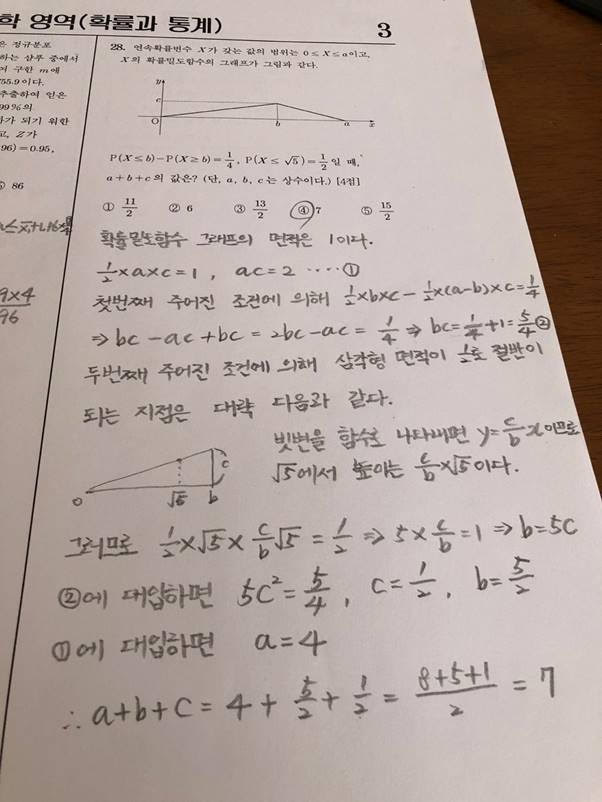 학 영역(확률과 통계)
3
은 정규분포
하는 샴푸 중에서
여 구한 m에
755.9이다.
추출하여 얻은
99%의
하가 되기 위한
고, Z가
96)=0.95,
86
9×4
96
28. 연속확률변수 X가 갖는 값의 범위는 0≤X≤a이고,
X의 확률밀도함수의 그래프가 그림과 같다.
y
c
O b a x
P(X≤b)-P(X≥b)=1/4, P(X≤√5)=1/2일 때,
a+b+c의 값은? (단, a, b, c는 상수이다.) [4점]
① 11/2 ② 6 ③ 13/2 ④ 7 ⑤ 15/2
확률밀도함수 그래프의 면적은 1이다.
1/2×a×c=1, ac=2 ····①
첫번째 주어진 조건에 의해 1/2×b×c-1/2×(a-b)×c=1/4
⇒ bc-ac+bc=2bc-ac=1/4 ⇒ bc=1/4+1=5/4 ②
두번째 주어진 조건에 의해 삼각형 면적이 1/2로 절반이
되는 지점은 대략 다음과 같다.
빗변을 함수로 나타내면 y=c/b x이므로
√5에서 높이는 c/b×√5이다.
c
O √5 b
그러므로 1/2×√5×c/b√5=1/2 ⇒ 5×c/b=1 ⇒ b=5c
②에 대입하면 5c²=5/4, c=1/2, b=5/2
①에 대입하면 a=4
∴ a+b+c=4+5/2+1/2=8+5+1/2=7